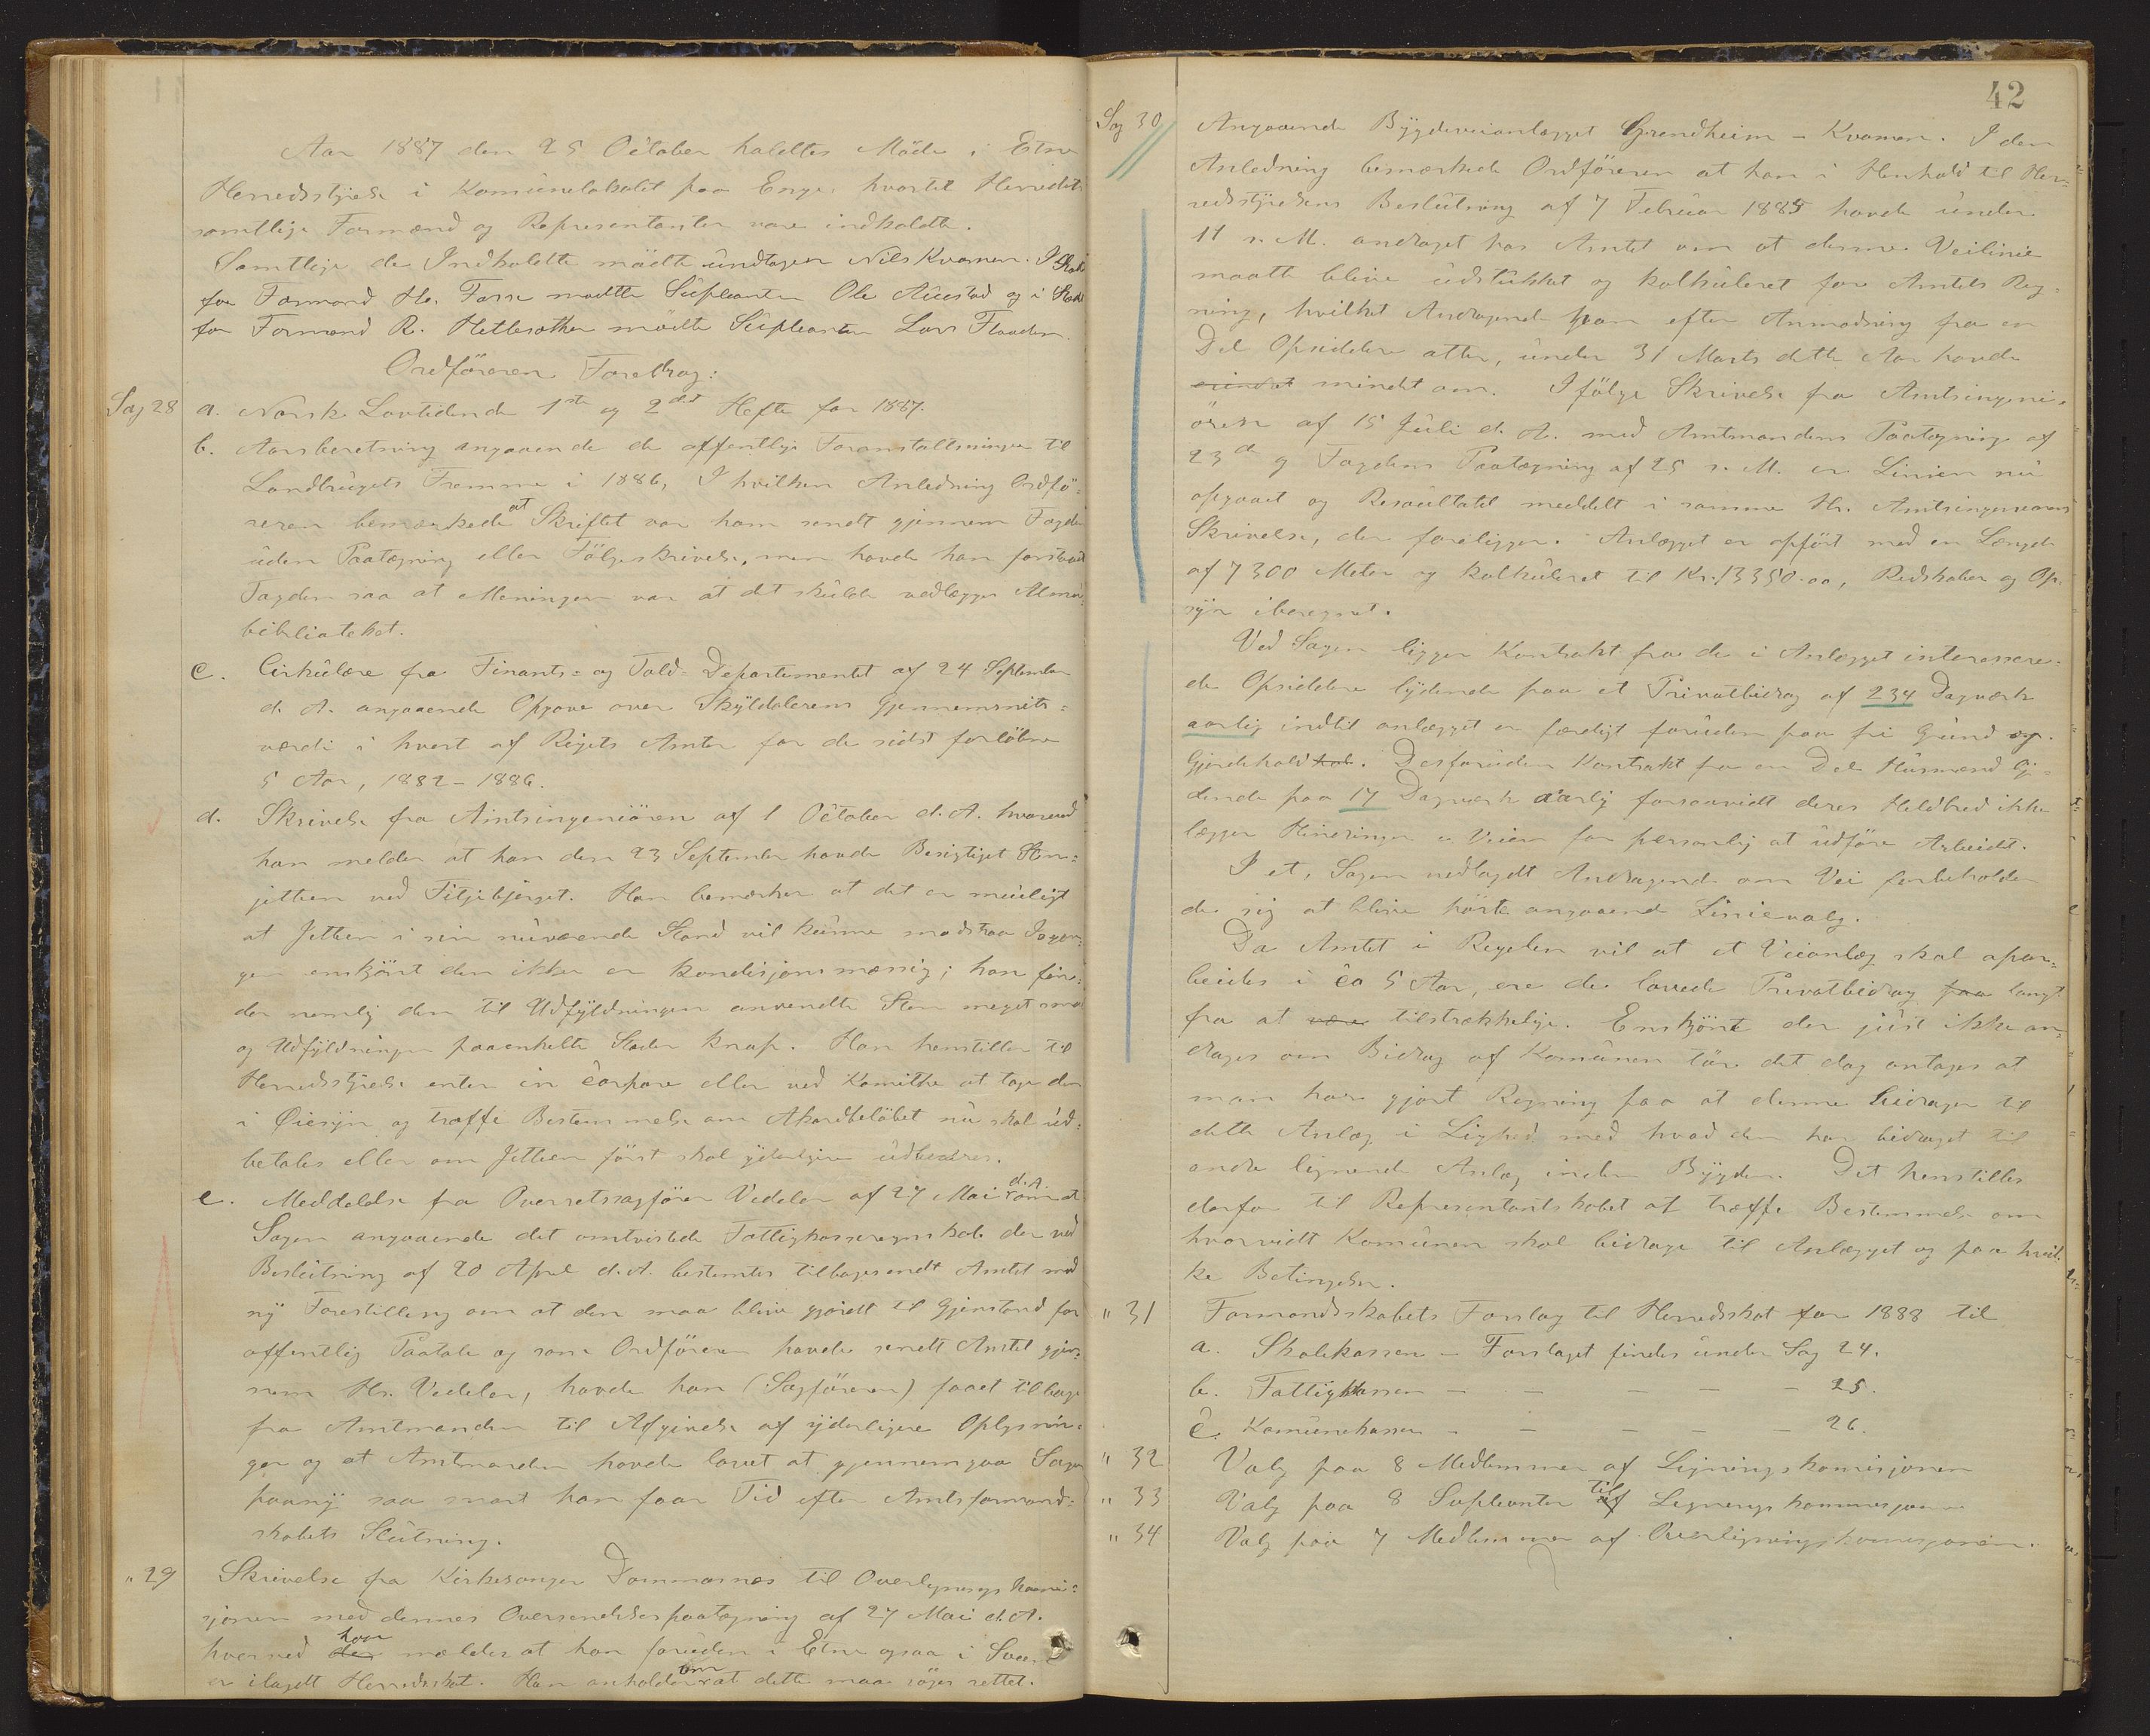 Aar 1887 den 25 October holdtes Møde i Etne
Herredsstyrelse i Komûnelokalet paa Enge, hvortil Herredets
samtlige Formænd og Representanter vare indkaldte.
Samtlige de Indkaldte mødte ûndtagen Nils Kvamen. I Sted
for Formand H. Tesse mødte Sûpleanten Ole Aûestad og i Sted
for Formand R. Hettesæther mødte Sûpleanten Lars Flaaden.
Ordføreren Foredrag:
Sag 28 a. Norsk Lovtidende 1ste og 2det Hefte for 1887.
b. Aarsberetning angaaende de offentlige Foranstaltninger til
Landbrûgets Fremme i 1886, I hvilken Anledning Ordfø-
reren bemærkede at Skriftet var ham sendt gjennem Fogden
ûden Paategning eller Følgeskrivelse, men havde han forstaaet
Fogden saa at Meningen var at det skûlde vedlægges Almû-
bibliotheket.
c. Cirkûlære fra Finants- og Told-Departementet af 24 September
d. A. angaaende Opgave over Skylddalerens Gjennemsnits-
værdi i hvert af Rigets Amter for de sidst forløbne
5 Aar, 1882-1886.
d. Skrivelse fra Amtsingeniøren af 1 October d. A. hvorved
han melder at han den 23 September havde Besigtiget Sten-
jetteen ved Fitjebjerget. Han bemærker at det er mûeligt
at Jetteen i sin nûværende Stand vil kûnne modstaa
enskjønt den ikke er kondisjonsmæssig; han fin-
der nemlig den til Udfyldningen anvendte Sten meget smaa
og Udfyldningen paa enkelte Steder knap. Han henstiller til
Herredsstyrelse enten in corpore eller ved Komithe at tage den
i Øiesyn og træffe Bestemmelse om Akordbeløbet nû skal ûd-
betales eller om Jetteen først skal yderligere ûdbedres.
e. Meddelelse fra Overretssagfører Vedeler af 27 Mai d. A. om at
Sagen angaaende det omtvistede Fattigkasseregnskab der ved
Beslûtning af 20 April d. A. bestemtes tilbagesendt Amtet med
ny Forestilling om at den maa blive gjordt til Gjenstand for
offentlig Paatale og som Ordføreren havde sendt Amtet gjen-
nem Hr. Vedeler, havde han (Sagføreren) faaet tilbage
fra Amtmanden til Afgivelse af yderligere Oplysnin-
ger og at Amtmanden havde lovet at gjennemgaa Sagen
paany saa snart han faar Tid efter Amtsformand-
skabets Slûtning.
" 29 Skrivelse fra Kirkesanger Dommersnes til Overlignings komi-
sjonen med dennes Oversendelsespaategning af 27 Mai d. A.
hvorved der han melder at han forûden i Etne ogsaa i
er ilagdt Herredsskat. Han anholder om at dette maa søges rettet.
42
Sag 30 Angaaende Bygdeveianlægget Grendheim - Kvamen. I den
Anledning bemærkede Ordføreren at han i Henhold til Her-
redsstyrelsens Beslûtning af 7 Febrûar 1885 havde ûnder
11 s. M. andraget hos Amtet om at denne Veilinie
maatte blive ûdstûkket og kalkûleret for Amtets Reg-
ning, hvilket Andragende han efter Anmodning fra en
Del Opsiddere atter, ûnder 31 Marts dette Aar havde
erindret mindet om. Ifølge Skrivelse fra Amtsingeni-
øren af 15 Jûli d. A. med Amtmandens Paategning af
23de og Fogdens Paategning af 25 s. M. er Linien nû
opgaaet og Resûltatet meddelt i samme Hr. Amtsingeniørens
Skrivelse, der foreligger. Anlægget er opført med en Længde
af 7300 Meter og kalkûleret til Kr. 13350.00, Redskaber og Op-
syn iberegnet.
Ved Sagen ligger Kontrakt fra de i Anlægget interessere-
de Opsiddere lydende paa et Privatbidrag af 234 Dagværk
aarlig indtil anlægget er færdigt forûden paa fri Grûnd og
Gjærdehold. Desforûden Kontrakt fra en Del Hûsmænd ly-
dende paa 17 Dagværk aarlig forsaavidt deres Heldbred ikke
lægger Hindringer i Veien for personlig at ûdføre Arbeidet.
I et, Sagen vedlagdt Andragende om Vei forbeholder
de sig at blive hørte angaaende Linievalg.
Da Amtet i Regelen vil at et Veianlæg skal opar-
beides i ca 5 Aar, ere de lovede Privatbidrag langt
fra at være tilstrækkelige. Enskjønt der jûst ikke an-
drages om Bidrag af Komûnen tør det dog antages at
man har gjort Regning paa at denne bidrager til
dette Anlæg i Lighed med hvad den har bidraget til
andre lignende Anlæg inden Bygden. Det henstilles
derfor til Representantskabet at træffe Bestemmelse om
hvorvidt Komûnen skal bidrage til Anlægget og paa hvil-
ke Betingelser.
" 31 Formandsskabets Forslag til Herredsskat for 1888 til
a. Skolekassen - Forslaget findes ûnder Sag 24.
b. Fattigkassen - - - - - 25.
c. Komûnekassen - - - - - 26.
" 32 Valg paa 8 Medlemmer af Ligningskomisjonen
" 33 Valg paa 8 Supleanter af til Ligningskommisjonen
" 34 Valg paa 7 Medlemmer af Overligningskomisjonen.